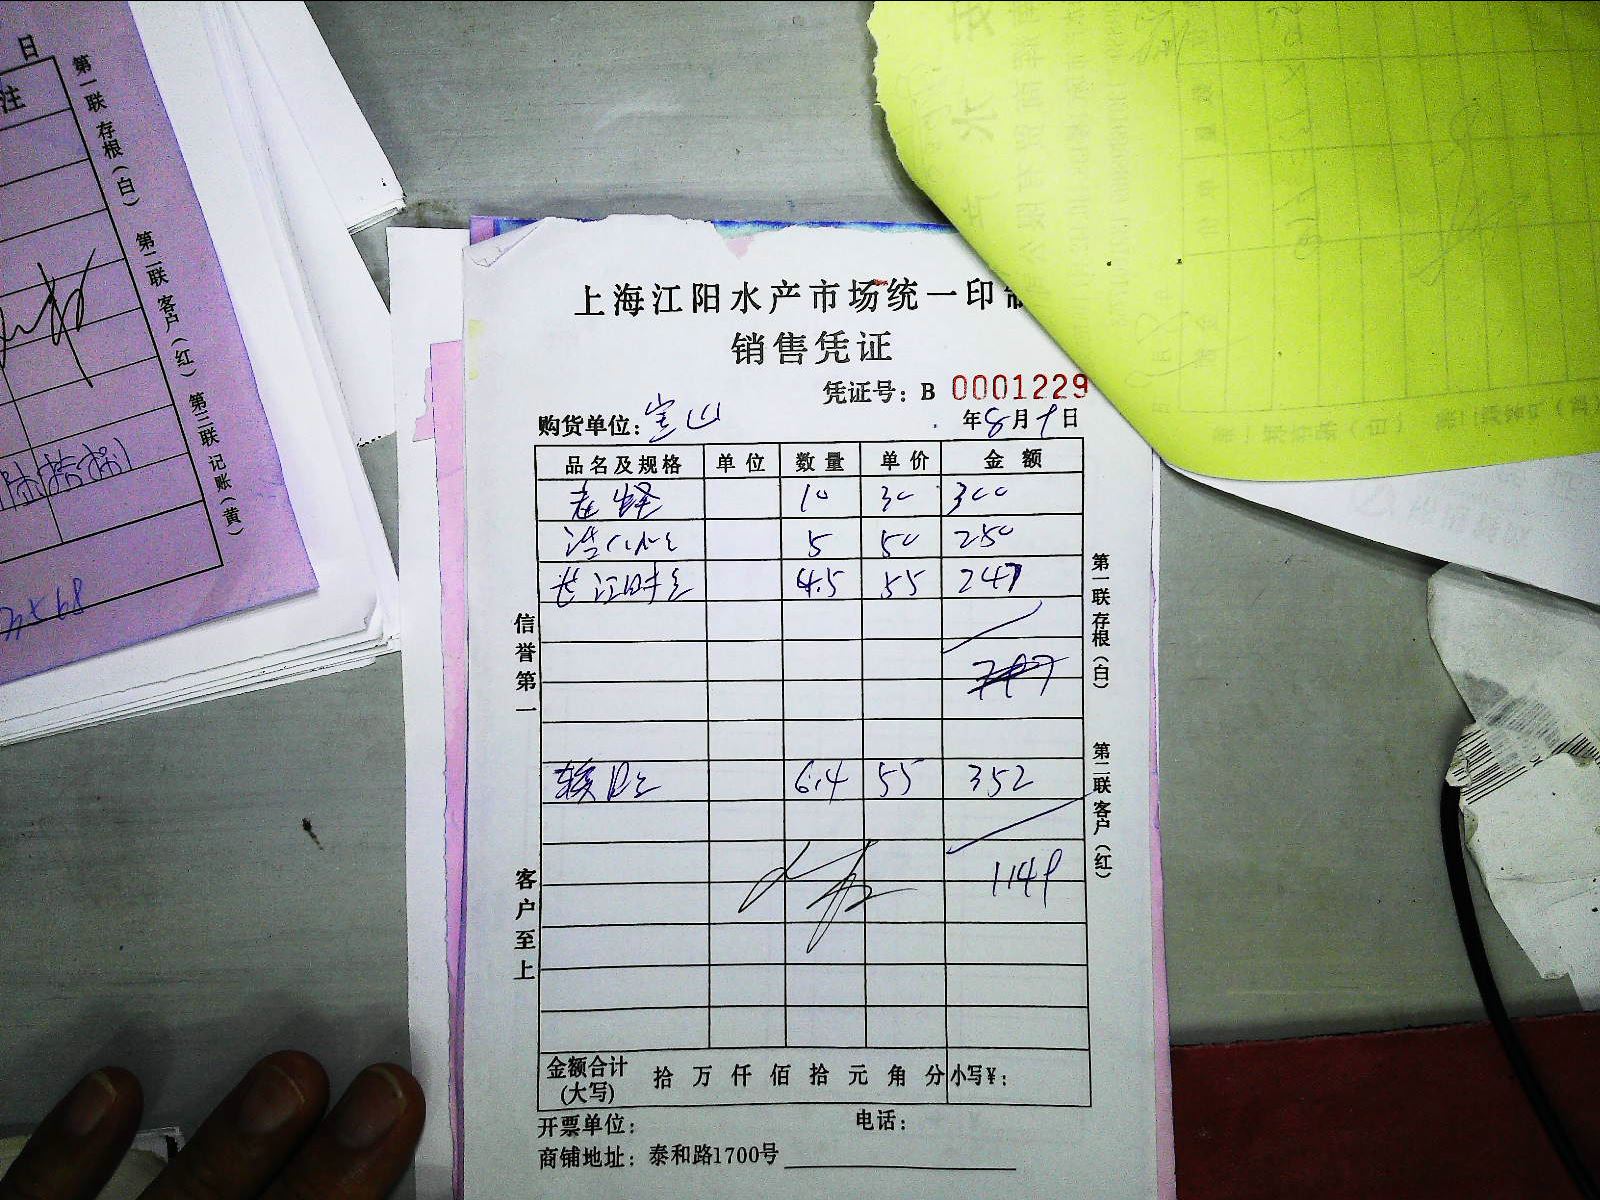 日
注
第一联 存根（白） 第二联 客户（红） 第三联 记账（黄）
上海江阳水产市场统一印制
销售凭证
凭证号：B 0001229
购货单位：宝山 年8月9日
品名及规格 单位 数量 单价 金额
老蛏 10 30 300
5 50 250
长江 4.5 55 247
797
6.4 55 352
1149
信誉第一
客户至上
第一联 存根（白）
第二联 客户（红）
金额合计(大写) 拾 万 仟 佰 拾 元 角 分 小写￥：
开票单位： 电话：
商铺地址：泰和路1700号